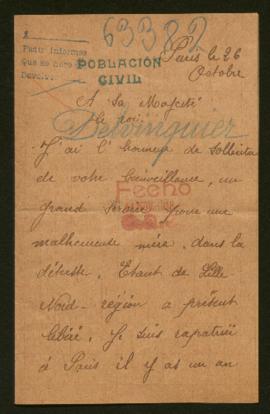 63382
Paris le 26
Octobre
Pedir informes
Devolver
POBLACIÓN
CIVIL
A Sa Majesté
le Roi
Delvinquier
J'ai l'honneur de Solliciter
de votre bienveillance, un
grand service pour une
malheureuse mère, dans la
détresse. Etant de Lille
Nord - région a présent
libéré, Je suis rapatrié
à Paris il y as un an
Fecho